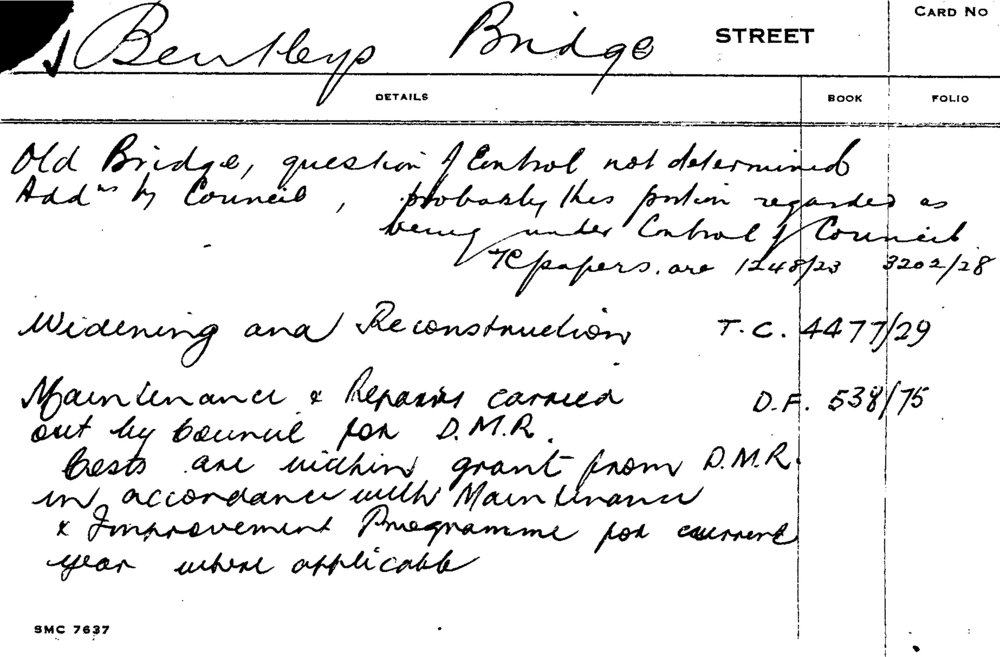 Bentleys Bridge STREET CARD NO
DETAILS BOOK FOLIO
Old Bridge, question of Control not determined
Addns by Council, probably this portion regarded as
being under Control of Council
TC papers are 1248/23 3202/28
Widening and Reconstruction T.C. 4477/29
Maintenance & Repairs carried D.F. 538/75
out by Council for D.M.R.
Costs are within grant from D.M.R.
in accordance with Maintenance
& Improvement Programme for current
year where applicable
SMC 7637